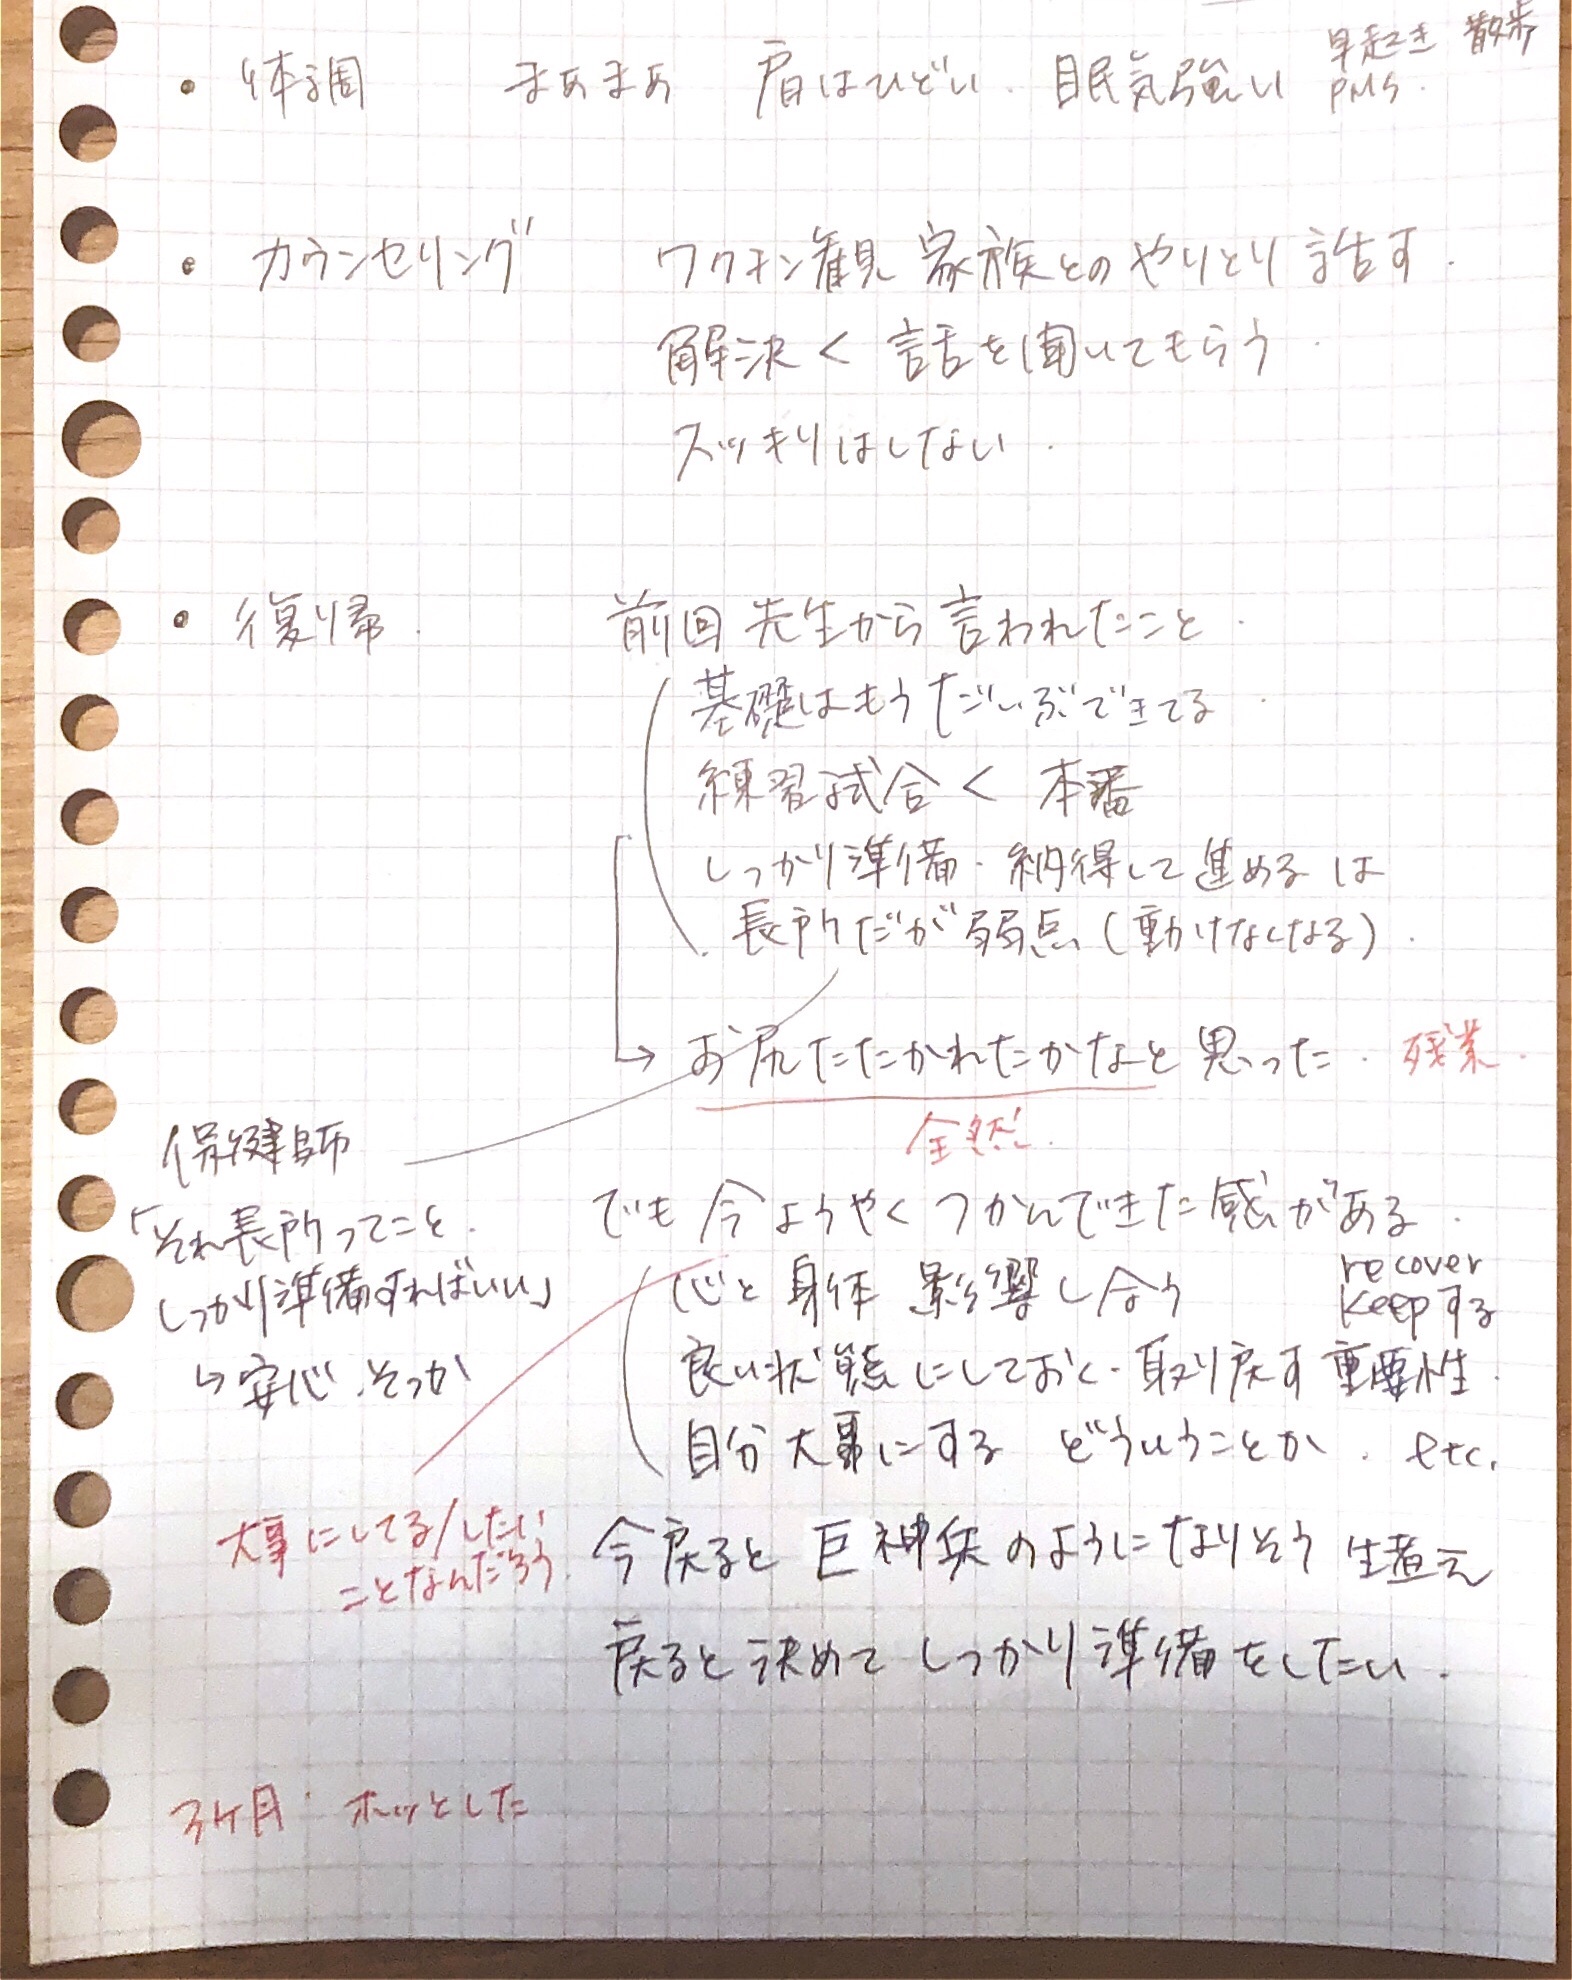 ・体調　まあまあ　肩はひどい．眠気強い　早起き 散歩
PMS．
・カウンセリング　ワクチン観 家族とのやりとり 話す．
解決 < 話を聞いてもらう．
スッキリはしない．
・復帰．　前回 先生から言われたこと．
基礎はもうだいぶできてる．
練習試合 < 本番
しっかり準備・納得して進めるは
長所だが弱点（動けなくなる）．
→ お尻たたかれたかなと思った．残業．
全然．
保健師
「それ長所ってこと．
しっかり準備すればいい」
↳安心．そっか
でも 今ようやくつかんできた感がある．
心と身体 影響し合う　recover
keepする
良い状態にしておく・取り戻す重要性．
自分大事にする　どういうことか．etc.
大事にしてる/したい
ことなんだろう．
今戻ると 巨神兵のようになりそう 生煮え
戻ると決めて しっかり準備をしたい．
3ケ月：ホッとした